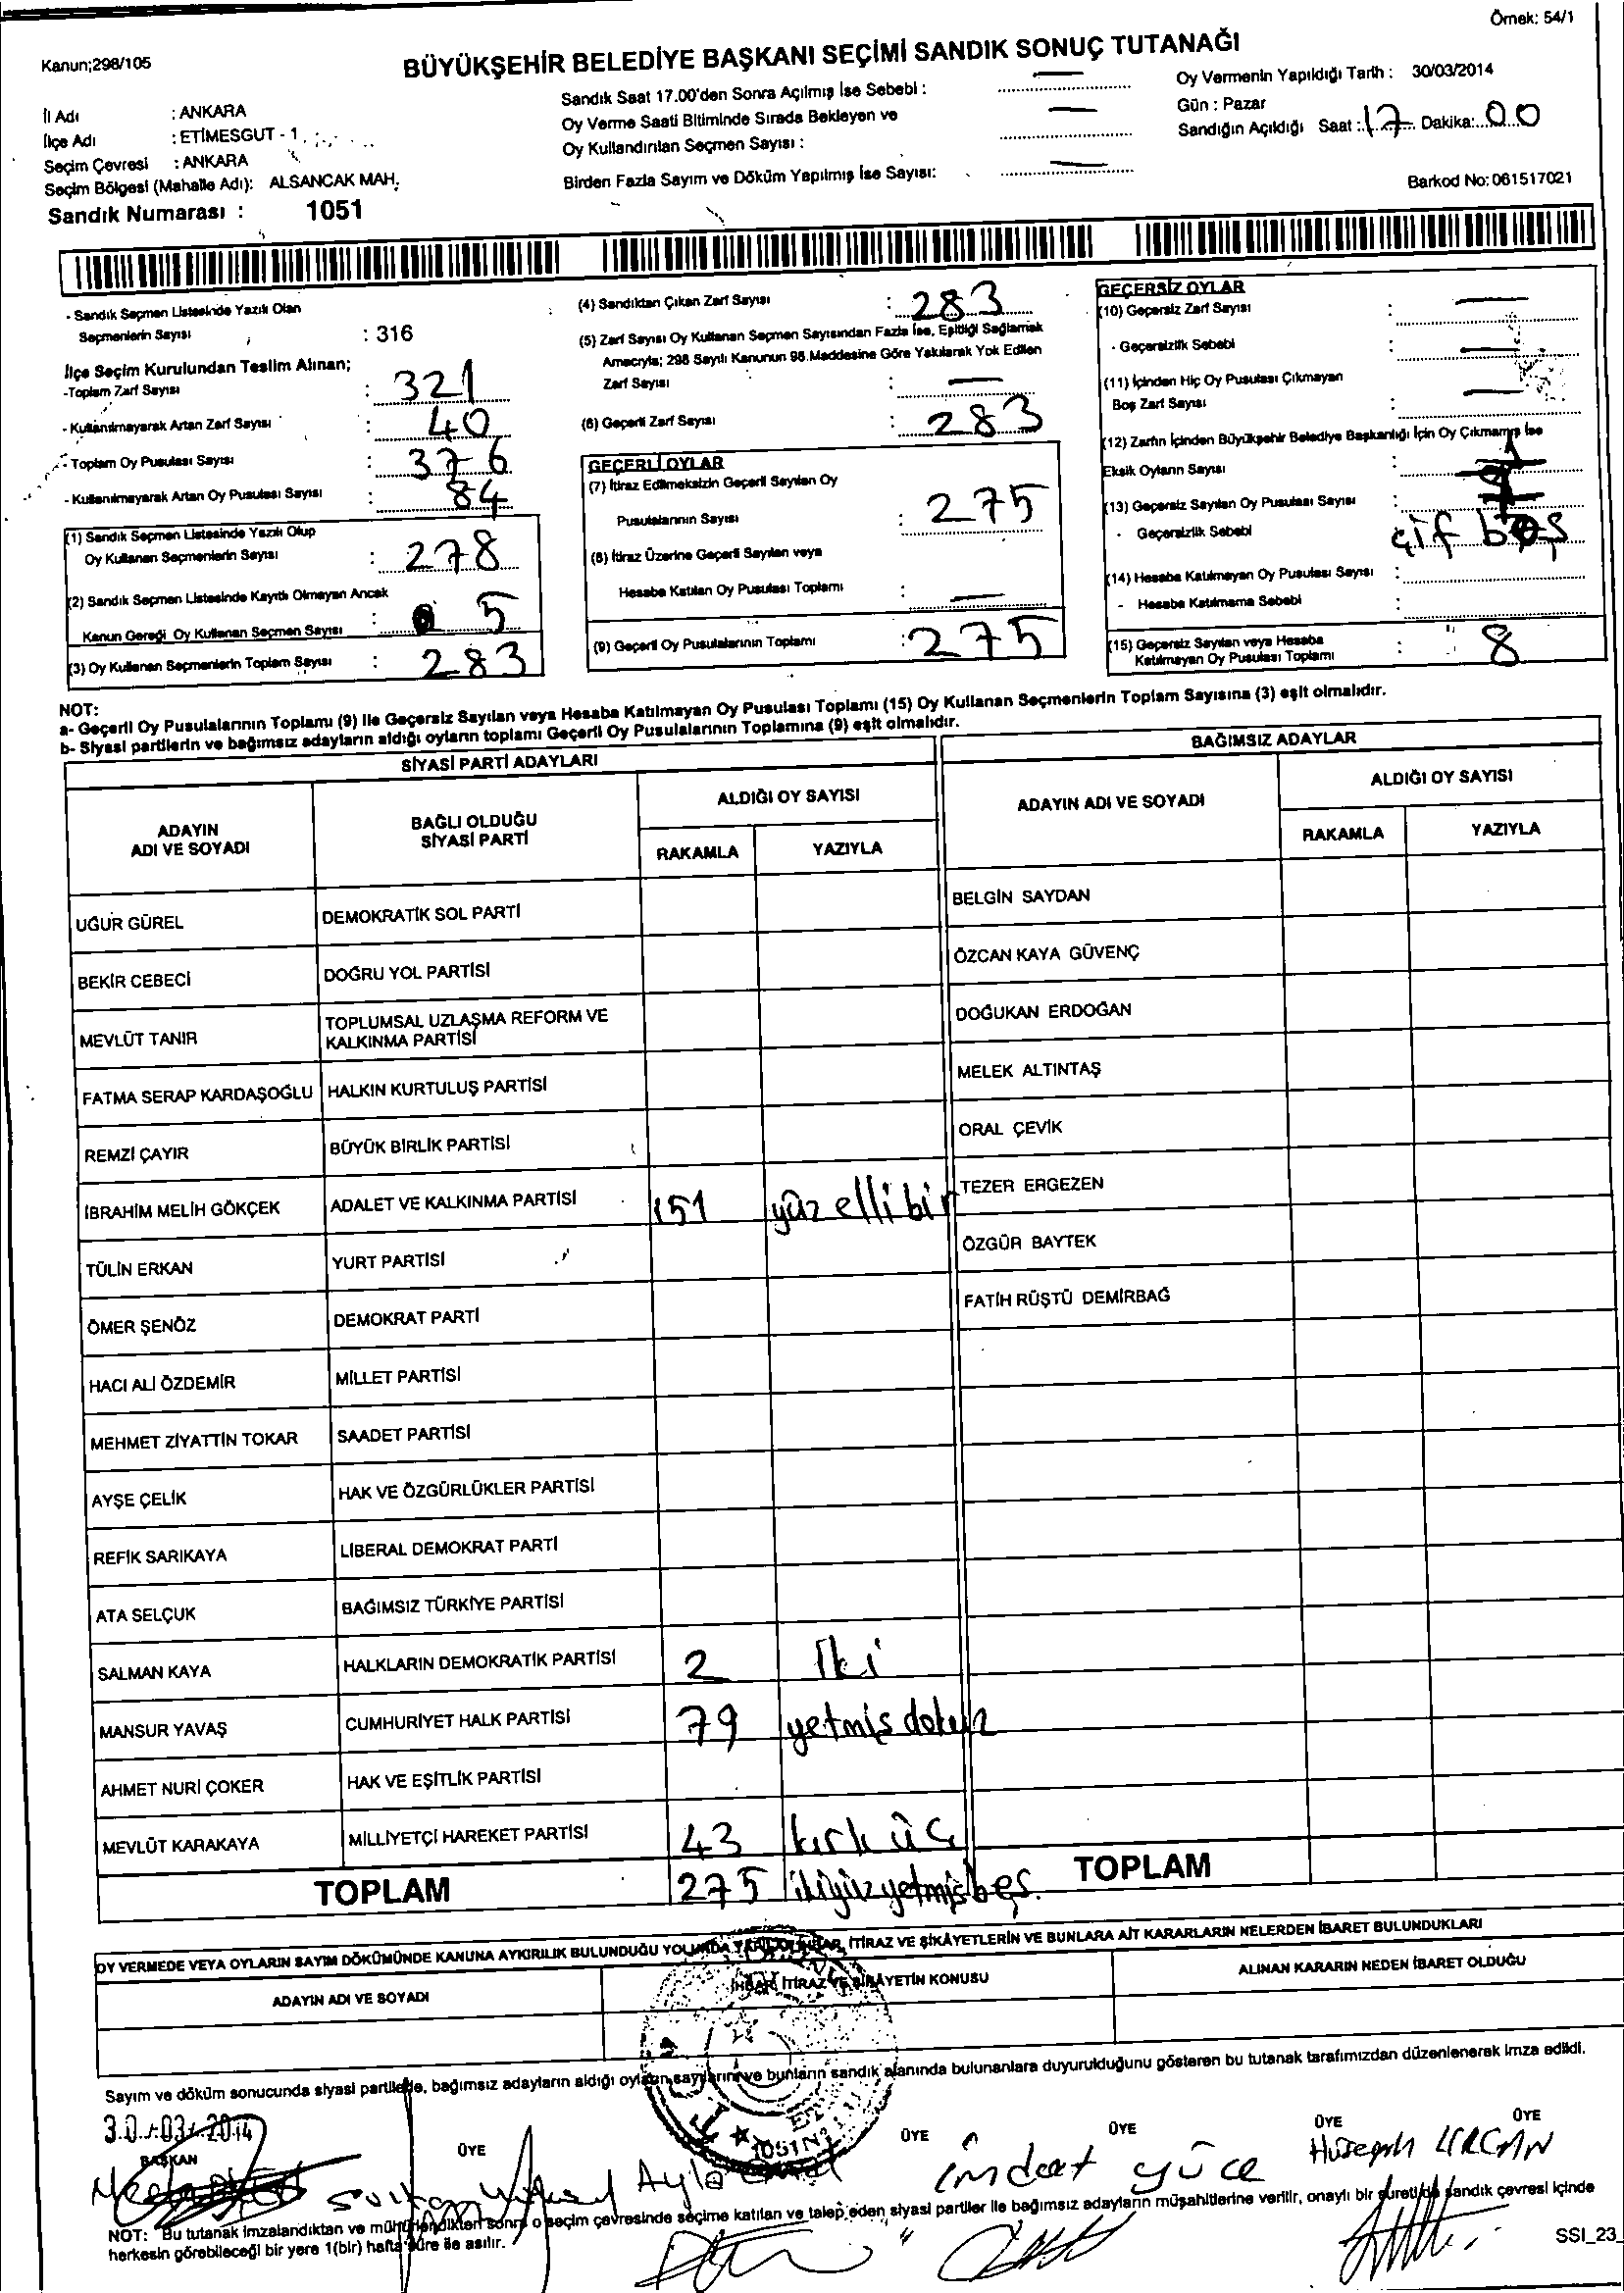 Örnek: 54/1
Kanun;298/105
BÜYÜKŞEHİR BELEDİYE BAŞKANI SEÇİMİ SANDIK SONUÇ TUTANAĞI
İl Adı : ANKARA
İlçe Adı : ETİMESGUT - 1
Seçim Çevresi : ANKARA
Seçim Bölgesi (Mahalle Adı): ALSANCAK MAH.
Sandık Numarası : 1051
Sandık Saat 17.00'den Sonra Açılmış İse Sebebi : —
Oy Verme Saati Bitiminde Sırada Bekleyen ve
Oy Kullandırılan Seçmen Sayısı : —
Birden Fazla Sayım ve Döküm Yapılmış İse Sayısı: —
Oy Vermenin Yapıldığı Tarih : 30/03/2014
Gün : Pazar
Sandığın Açıldığı Saat : 17 Dakika: 00
Barkod No: 061517021
- Sandık Seçmen Listesinde Yazılı Olan
Seçmenlerin Sayısı : 316
İlçe Seçim Kurulundan Teslim Alınan;
-Toplam Zarf Sayısı : 321
- Kullanılmayarak Artan Zarf Sayısı : 40
- Toplam Oy Pusulası Sayısı : 376
- Kullanılmayarak Artan Oy Pusulası Sayısı : 84
(1) Sandık Seçmen Listesinde Yazılı Olup
Oy Kullanan Seçmenlerin Sayısı : 278
(2) Sandık Seçmen Listesinde Kayıtlı Olmayan Ancak
Kanun Gereği Oy Kullanan Seçmen Sayısı : 5
(3) Oy Kullanan Seçmenlerin Toplam Sayısı : 283
(4) Sandıktan Çıkan Zarf Sayısı : 283
(5) Zarf Sayısı Oy Kullanan Seçmen Sayısından Fazla İse, Eşitliği Sağlamak
Amacıyla; 298 Sayılı Kanunun 98.Maddesine Göre Yakılarak Yok Edilen
Zarf Sayısı : —
(6) Geçerli Zarf Sayısı : 283
GEÇERLİ OYLAR
(7) İtiraz Edilmeksizin Geçerli Sayılan Oy
Pusulalarının Sayısı : 275
(8) İtiraz Üzerine Geçerli Sayılan veya
Hesaba Katılan Oy Pusulası Toplamı : —
(9) Geçerli Oy Pusulalarının Toplamı : 275
GEÇERSİZ OYLAR
(10) Geçersiz Zarf Sayısı : —
- Geçersizlik Sebebi : —
(11) İçinden Hiç Oy Pusulası Çıkmayan
Boş Zarf Sayısı : —
(12) Zarfın İçinden Büyükşehir Belediye Başkanlığı İçin Oy Çıkmamış İse
Eksik Oyların Sayısı :
(13) Geçersiz Sayılan Oy Pusulası Sayısı :
- Geçersizlik Sebebi : çif boş
(14) Hesaba Katılmayan Oy Pusulası Sayısı :
- Hesaba Katılmama Sebebi :
(15) Geçersiz Sayılan veya Hesaba
Katılmayan Oy Pusulası Toplamı : 8
NOT:
a- Geçerli Oy Pusulalarının Toplamı (9) ile Geçersiz Sayılan veya Hesaba Katılmayan Oy Pusulası Toplamı (15) Oy Kullanan Seçmenlerin Toplam Sayısına (3) eşit olmalıdır.
b- Siyasi partilerin ve bağımsız adayların aldığı oyların toplamı Geçerli Oy Pusulalarının Toplamına (9) eşit olmalıdır.
SİYASİ PARTİ ADAYLARI BAĞIMSIZ ADAYLAR
ADAYIN ADI VE SOYADI BAĞLI OLDUĞU SİYASİ PARTİ ALDIĞI OY SAYISI ADAYIN ADI VE SOYADI ALDIĞI OY SAYISI
RAKAMLA YAZIYLA RAKAMLA YAZIYLA
UĞUR GÜREL DEMOKRATİK SOL PARTİ BELGİN SAYDAN
BEKİR CEBECİ DOĞRU YOL PARTİSİ ÖZCAN KAYA GÜVENÇ
MEVLÜT TANIR TOPLUMSAL UZLAŞMA REFORM VE KALKINMA PARTİSİ DOĞUKAN ERDOĞAN
FATMA SERAP KARDAŞOĞLU HALKIN KURTULUŞ PARTİSİ MELEK ALTINTAŞ
REMZİ ÇAYIR BÜYÜK BİRLİK PARTİSİ ORAL ÇEVİK
İBRAHİM MELİH GÖKÇEK ADALET VE KALKINMA PARTİSİ 151 yüz elli bir TEZER ERGEZEN
TÜLİN ERKAN YURT PARTİSİ ÖZGÜR BAYTEK
ÖMER ŞENÖZ DEMOKRAT PARTİ FATİH RÜŞTÜ DEMİRBAĞ
HACI ALİ ÖZDEMİR MİLLET PARTİSİ
MEHMET ZİYATTİN TOKAR SAADET PARTİSİ
AYŞE ÇELİK HAK VE ÖZGÜRLÜKLER PARTİSİ
REFİK SARIKAYA LİBERAL DEMOKRAT PARTİ
ATA SELÇUK BAĞIMSIZ TÜRKİYE PARTİSİ
SALMAN KAYA HALKLARIN DEMOKRATİK PARTİSİ 2 İki
MANSUR YAVAŞ CUMHURİYET HALK PARTİSİ 79 yetmiş dokuz
AHMET NURİ ÇOKER HAK VE EŞİTLİK PARTİSİ
MEVLÜT KARAKAYA MİLLİYETÇİ HAREKET PARTİSİ 43 kırk üç
TOPLAM 275 ikiyüzyetmişbeş. TOPLAM
OY VERMEDE VEYA OYLARIN SAYIM DÖKÜMÜNDE KANUNA AYKIRILIK BULUNDUĞU YOLUNDA YAPILAN İHBAR, İTİRAZ VE ŞİKÂYETLERİN VE BUNLARA AİT KARARLARIN NELERDEN İBARET BULUNDUKLARI
ADAYIN ADI VE SOYADI İHBAR, İTİRAZ VE ŞİKÂYETİN KONUSU ALINAN KARARIN NEDEN İBARET OLDUĞU
Sayım ve döküm sonucunda siyasi partilerle, bağımsız adayların aldığı oyların sayılarını ve bunların sandık alanında bulunanlara duyurulduğunu gösteren bu tutanak tarafımızdan düzenlenerek imza edildi.
30/03/2014
BAŞKAN ÜYE ÜYE ÜYE ÜYE ÜYE
1051
Sultan Ayla imdat yüce Hüseyin
NOT: Bu tutanak imzalandıktan ve mühürlendikten sonra o seçim çevresinde seçime katılan ve talep eden siyasi partiler ile bağımsız adayların müşahitlerine verilir, onaylı bir sureti de sandık çevresi içinde
herkesin görebileceği bir yere 1(bir) hafta süre ile asılır.
SSI_23_